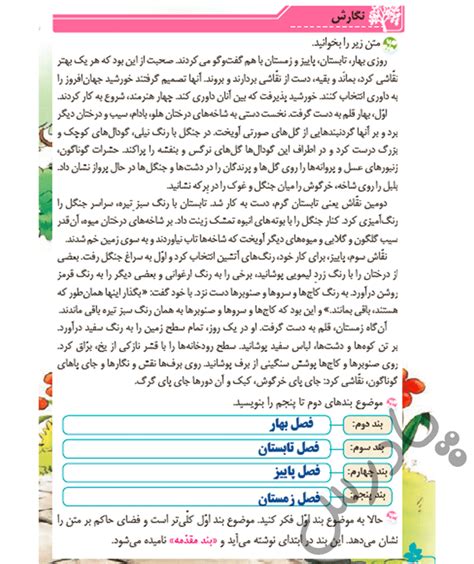 نگارش
متن زیر را بخوانید.
روزی بهار، تابستان، پاییز و زمستان با هم گفت‌وگو می‌کردند. صحبت از این بود که هر یک بهتر
نقاشی کرد، بماند و بقیه، دست از نقاشی بردارند و بروند. آنها تصمیم گرفتند خورشید جهان‌افروز را
به داوری انتخاب کنند. خورشید پذیرفت که بین آنان داوری کند. چهار هنرمند، شروع به کار کردند.
اوّل، بهار قلم به دست گرفت. نخست دستی به شاخه‌های درختان هلو، بادام، سیب و درختان دیگر
برد و بر آنها گردنبندهایی از گل‌های صورتی آویخت. در جنگل با رنگ نیلی، گودال‌های کوچک و
بزرگ درست کرد و در اطراف این گودال‌ها گل‌های نرگس و بنفشه را پراکند. حشرات گوناگون،
زنبورهای عسل و پروانه‌ها را روی گل‌ها و پرندگان را در دشت‌ها و جنگل‌ها در حال پرواز نشان داد.
بلبل را روی شاخه، خرگوش را میان جنگل و غوک را در برکه نشانید.
دومین نقاش یعنی تابستان گرم، دست به کار شد. تابستان با رنگ سبز تیره، سراسر جنگل را
رنگ‌آمیزی کرد. کنار جنگل را با بوته‌های انبوه تمشک زینت داد. بر شاخه‌های درختان میوه، آن‌قدر
سیب گلگون و گلابی و میوه‌های دیگر آویخت که شاخه‌ها تاب نیاوردند و به سوی زمین خم شدند.
نقاش سوم، پاییز، برای کار خود، رنگ‌های آتشین انتخاب کرد و اوّل به سراغ جنگل رفت. بعضی
از درختان را با رنگ زرد لیمویی پوشانید، برخی را به رنگ ارغوانی و بعضی دیگر را به رنگ قرمز
روشن درآورد. به رنگ کاج‌ها و سروها و صنوبرها دست نزد. با خود گفت: «بگذار اینها همان‌طور که
هستند، باقی بمانند.» و این بود که کاج‌ها و سروها و صنوبرها به همان رنگ سبز تیره باقی ماندند.
آن‌گاه زمستان، قلم به دست گرفت. او در یک روز، تمام سطح زمین را به رنگ سفید درآورد.
بر تن کوه‌ها و دشت‌ها، لباس سفید پوشانید. سطح رودخانه‌ها را با قشر نازکی از یخ، برّاق کرد.
روی صنوبرها و کاج‌ها پوشش سنگینی از برف پوشانید. روی برف‌ها نقش و نگارها و جای پاهای
گوناگون، نقّاشی کرد: جای پای خرگوش، کبک و آن دورها جای پای گرگ.
موضوع بندهای دوم تا پنجم را بنویسید.
بند دوم: فصل بهار
بند سوم: فصل تابستان
بند چهارم: فصل پاییز
بند پنجم: فصل زمستان
حالا به موضوع بند اوّل فکر کنید. موضوع بند اوّل کلّی‌تر است و فضای حاکم بر متن را
نشان می‌دهد. این بند در ابتدای نوشته می‌آید و «بند مقدّمه» نامیده می‌شود.